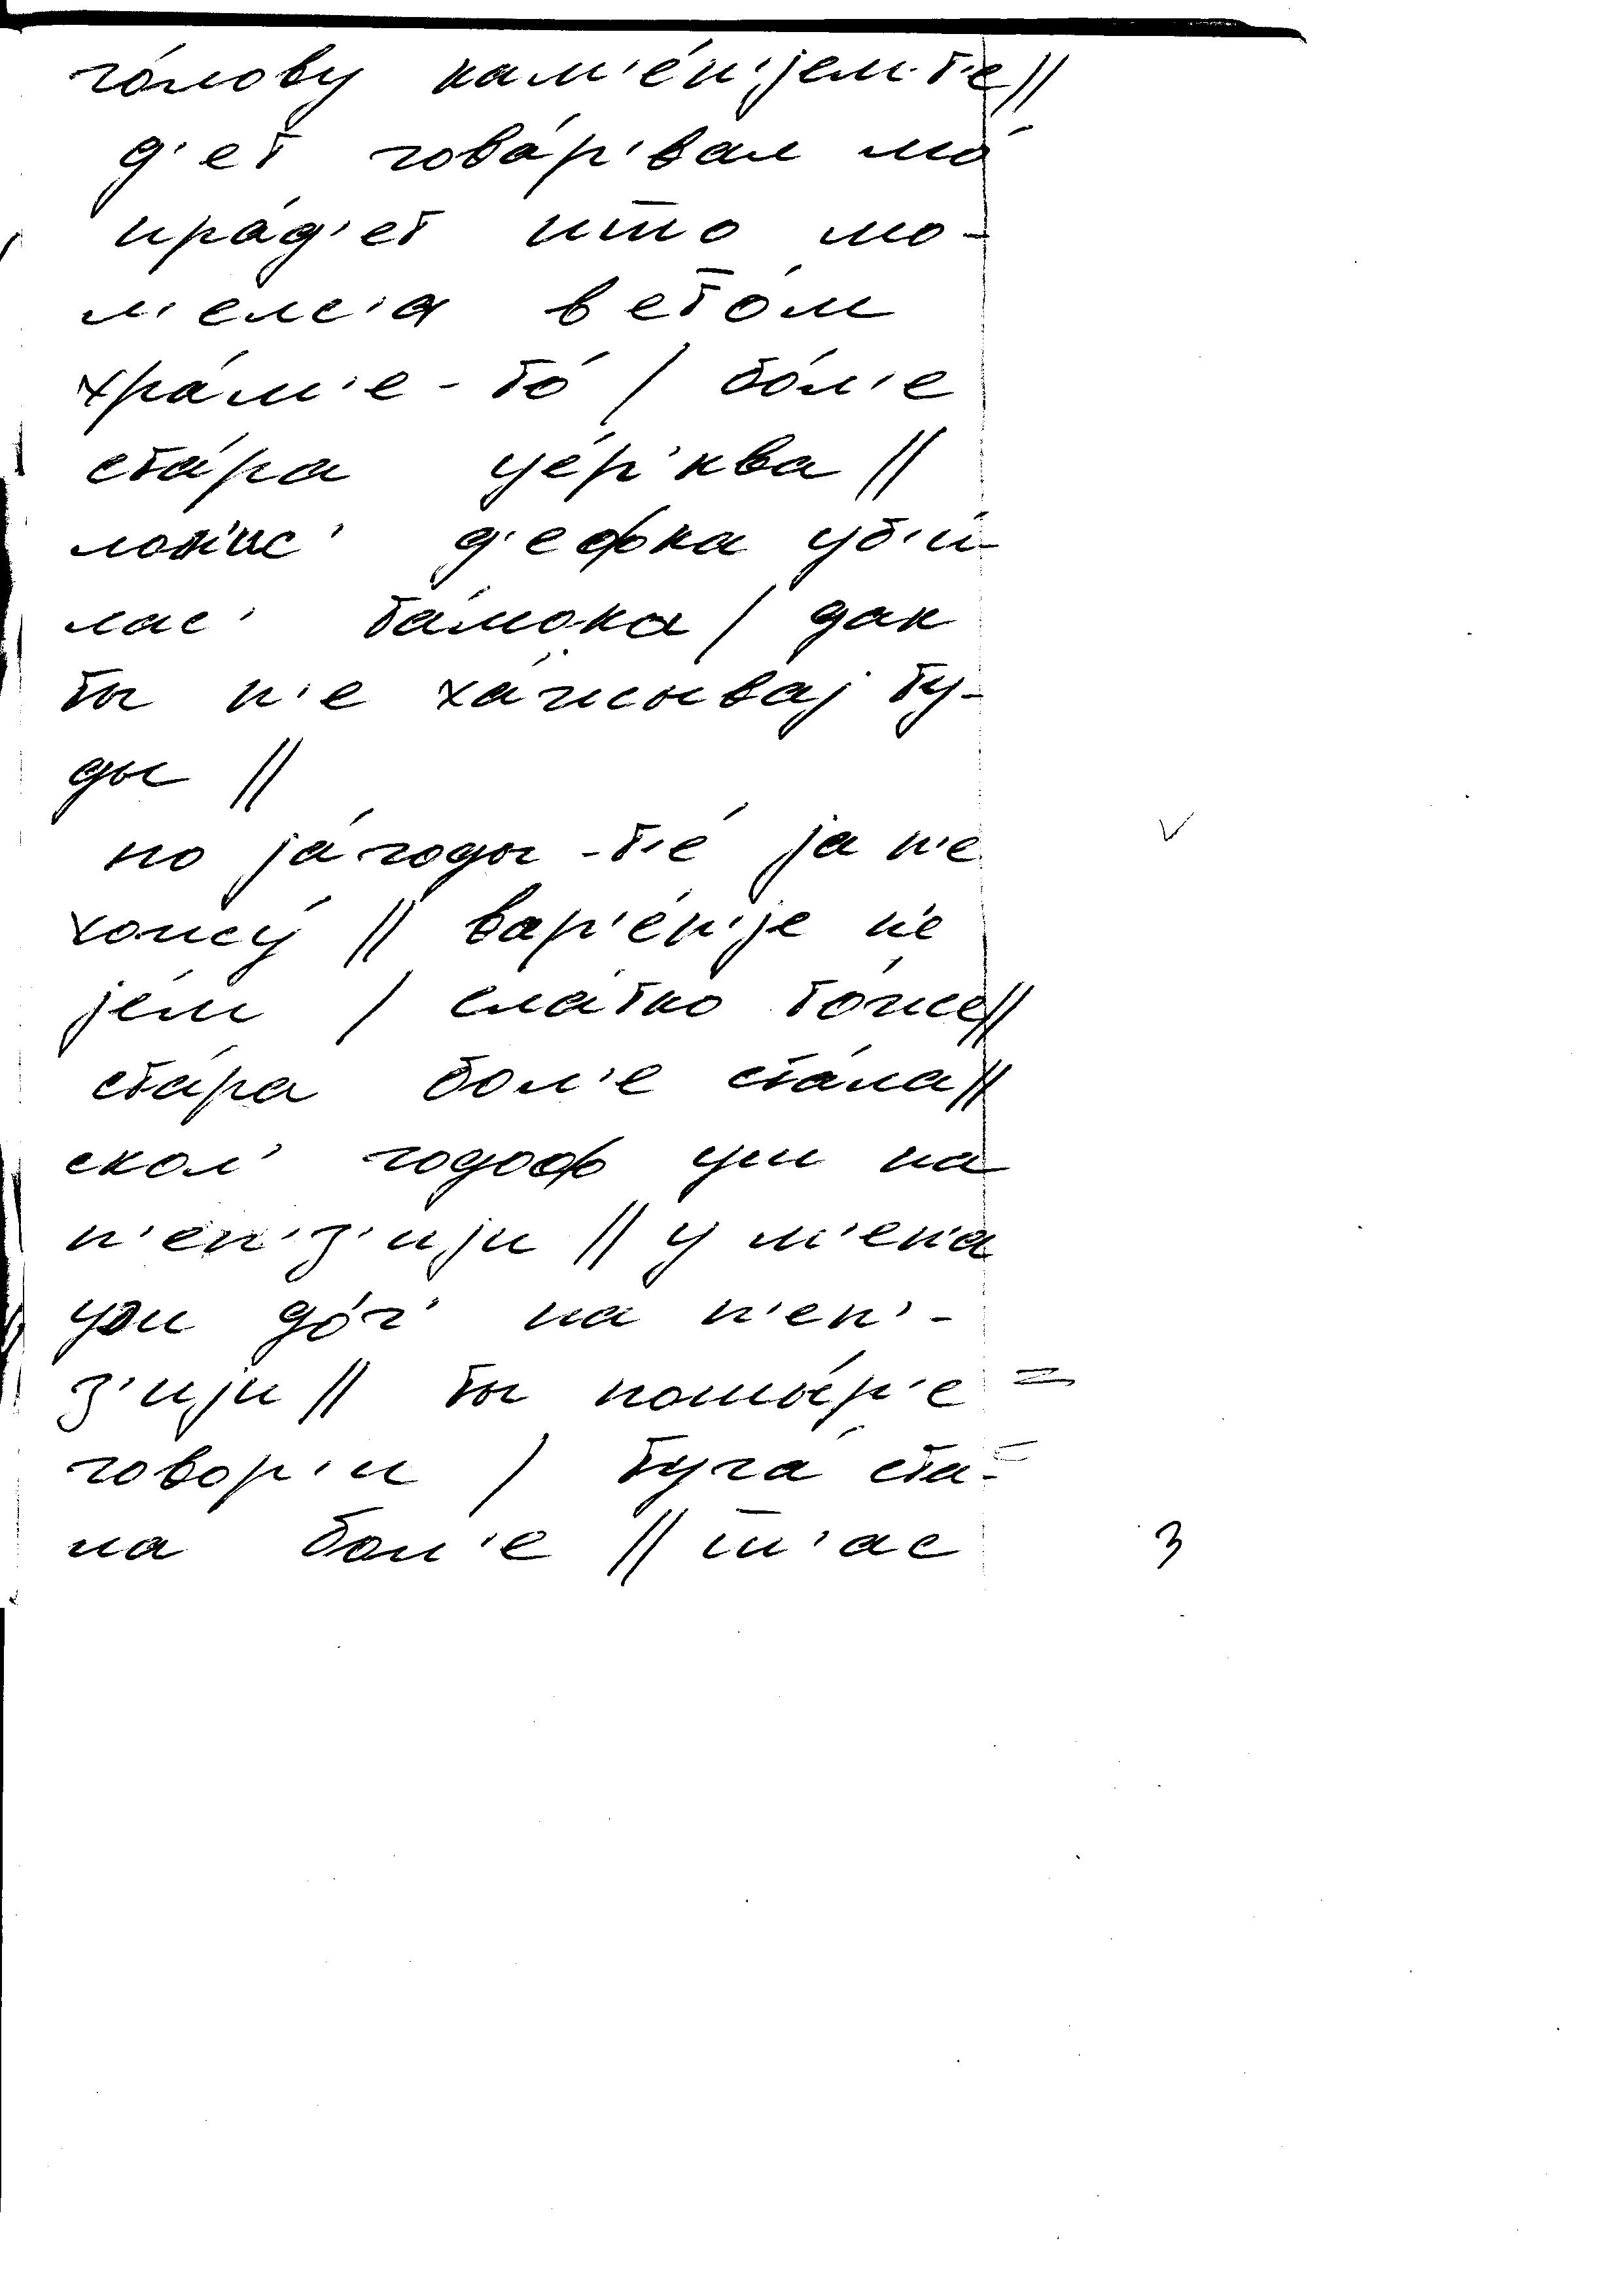 го́лову кам'е́н'јем-т'е //
д'ет гова́р'вал мо́
прад'ет што мо-
л'елс'а в ето́м
хра́м'е-то́ / бо́л'е
ста́ра це́р'ква //
лон'ис' д'ефка уб'и-
лас' та́мока / дак
ты н'е ха́жывај ту-
ды //
по ја́годы-т'е́ ја н'е
хожу́ // вар'е́н'је н'е
је́м / сла́тко то́же //
ста́ра бол'е ста́ла //
скол' годоф уш на
п'ен'з'ији // у м'ен'а
уш до́ч' на п'ен'-
з'ији // ты помы́р'е
говор'и / туга́ ста-
ла бол'е // ш'ас
3